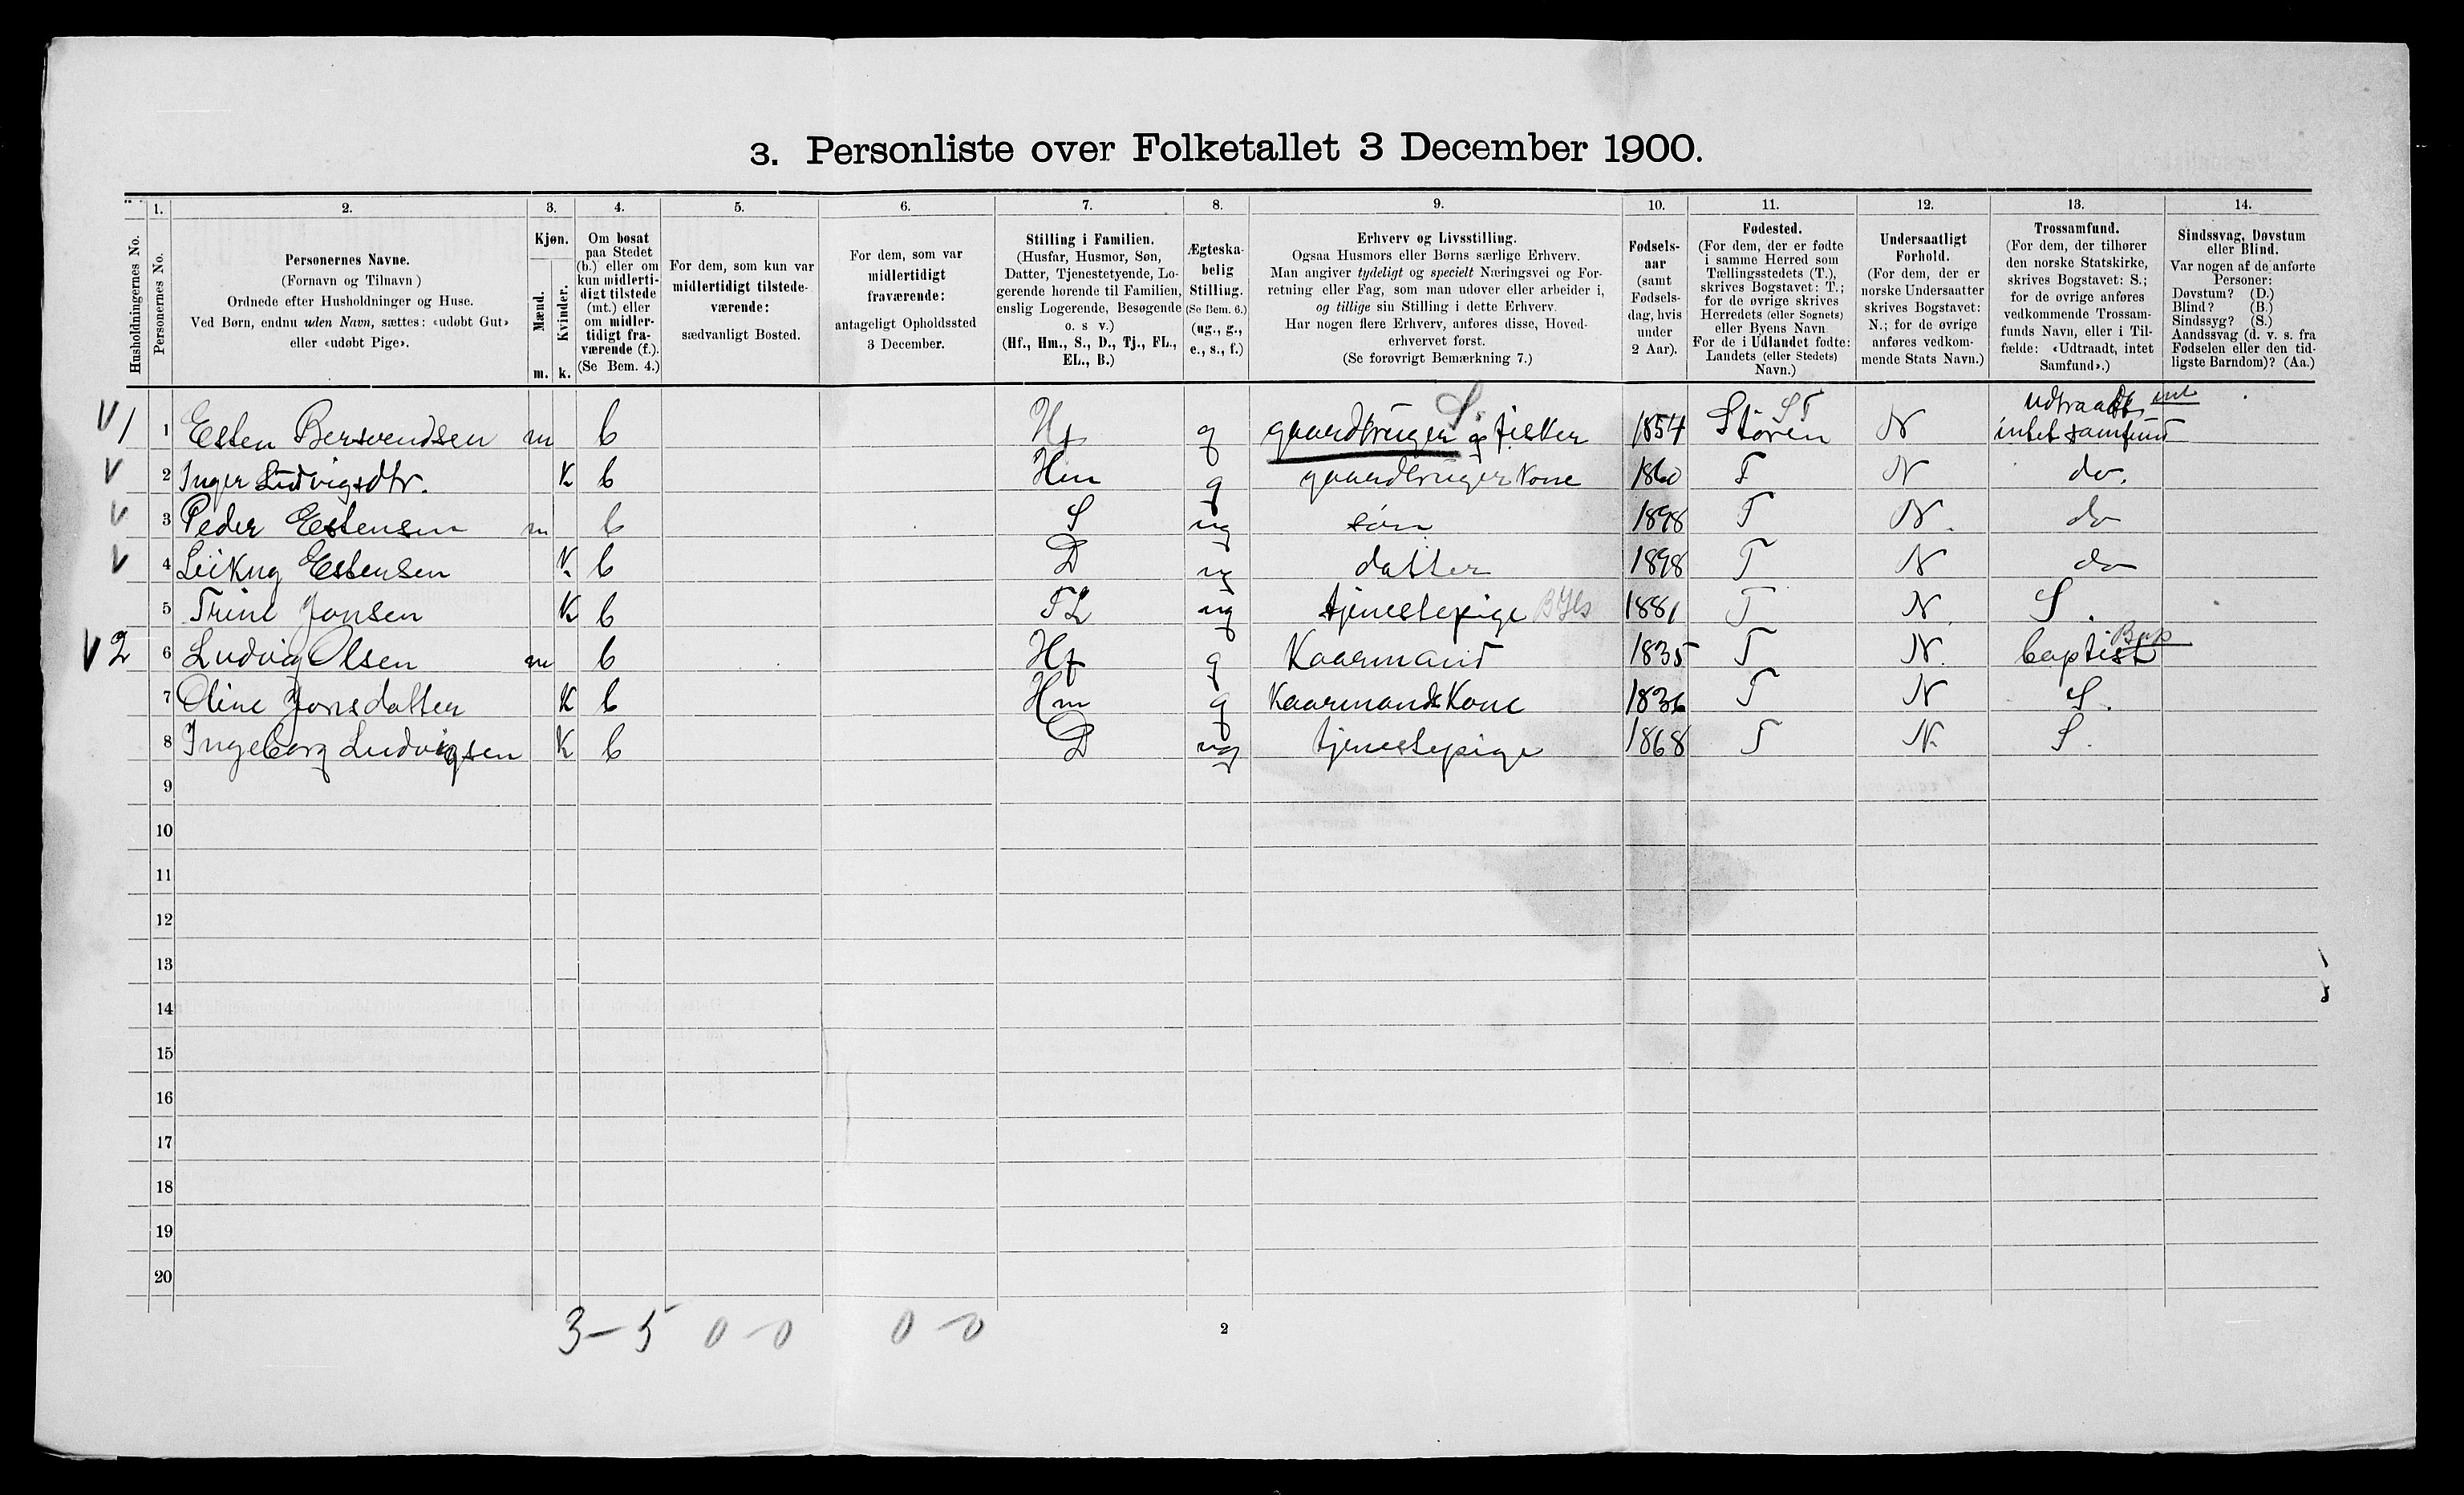 3. Personliste over Folketallet 3 December 1900.
1. 2. 3. 4. 5. 6. 7. 8. 9. 10. 11. 12. 13. 14.
Husholdningernes No.
Personernes No.
Personernes Navne.
(Fornavn og Tilnavn)
Ordnede efter Husholdninger og Huse.
Ved Børn, endnu uden Navn, sættes: «udøbt Gut»
eller «udøbt Pige».
Kjøn.
Mænd.
Kvinder.
m. k.
Om bosat
paa Stedet
(b.) eller om
kun midlerti-
digt tilstede
(mt.) eller
om midler-
tidigt fra-
værende (f.).
(Se Bem. 4.)
For dem, som kun var
midlertidigt tilstede-
værende:
sædvanligt Bosted.
For dem, som var
midlertidigt
fraværende:
antageligt Opholdssted
3 December.
Stilling i Familien.
(Husfar, Husmor, Søn,
Datter, Tjenestetyende, Lo-
gerende hørende til Familien,
enslig Logerende, Besøgende
o. s v.)
(Hf., Hm., S., D., Tj., FL.,
EL., B.)
Ægteska-
belig
Stilling.
(Se Bem. 6.)
(ug., g.,
e., s., f.)
Erhverv og Livsstilling.
Ogsaa Husmors eller Børns særlige Erhverv.
Man angiver tydeligt og specielt Næringsvei og For-
retning eller Fag, som man udøver eller arbeider i,
og tillige sin Stilling i dette Erhverv.
Har nogen flere Erhverv, anføres disse, Hoved-
erhvervet først.
(Se forøvrigt Bemærkning 7.)
Fødsels-
aar
(samt
Fødsels-
dag, hvis
under
2 Aar).
Fødested.
(For dem, der er fødte
i samme Herred som
Tællingsstedets (T.),
skrives Bogstavet: T.;
for de øvrige skrives
Herredets (eller Sognets)
eller Byens Navn
For de i Udlandet fødte:
Landets (eller Stedets)
Navn.)
Undersaatligt
Forhold.
(For dem, der er
norske Undersaatter
skrives Bogstavet:
N.; for de øvrige
anføres vedkom-
mende Stats Navn.)
Trossamfund.
(For dem, der tilhører
den norske Statskirke,
skrives Bogstavet: S.;
for de øvrige anføres
vedkommende Trossam-
funds Navn, eller i Til-
fælde: «Udtraadt, intet
Samfund».)
Sindssvag, Døvstum
eller Blind.
Var nogen af de anførte
Personer:
Døvstum? (D.)
Blind? (B.)
Sindssyg? (S.)
Aandssvag (d. v. s. fra
Fødselen eller den tid-
ligste Barndom)? (Aa.)
S. ST udtraadt int
V 1 1 Esten Bersvendsen m b Hf g gaardbruger og fisker 1854 Støren N intet samfund
V 2 Inger Ludvigsdtr. K b Hm g gaardbruger Kone 1860 T N do.
V 3 Peder Estensen m b S ug søn 1898 T N. do
V 4 Estensen K. b D ug datter 1898 T N do
5 Trine Jonsen K b FL ug tjenestepige 1881 T N. S.
Bap
V 2 6 Ludvig Olsen m b Hf g Kaarmand 1835 T N. baptist
7 Oline Jonsdatter K b Hm g Kaarmands Kone 1836 T N S.
8 Ingeborg Ludvigsen K b D ug tjenestepige 1868 T N. S.
9
10
11
12
13
14
15
16
17
18
19
20
3-5 0-0 0-0
2